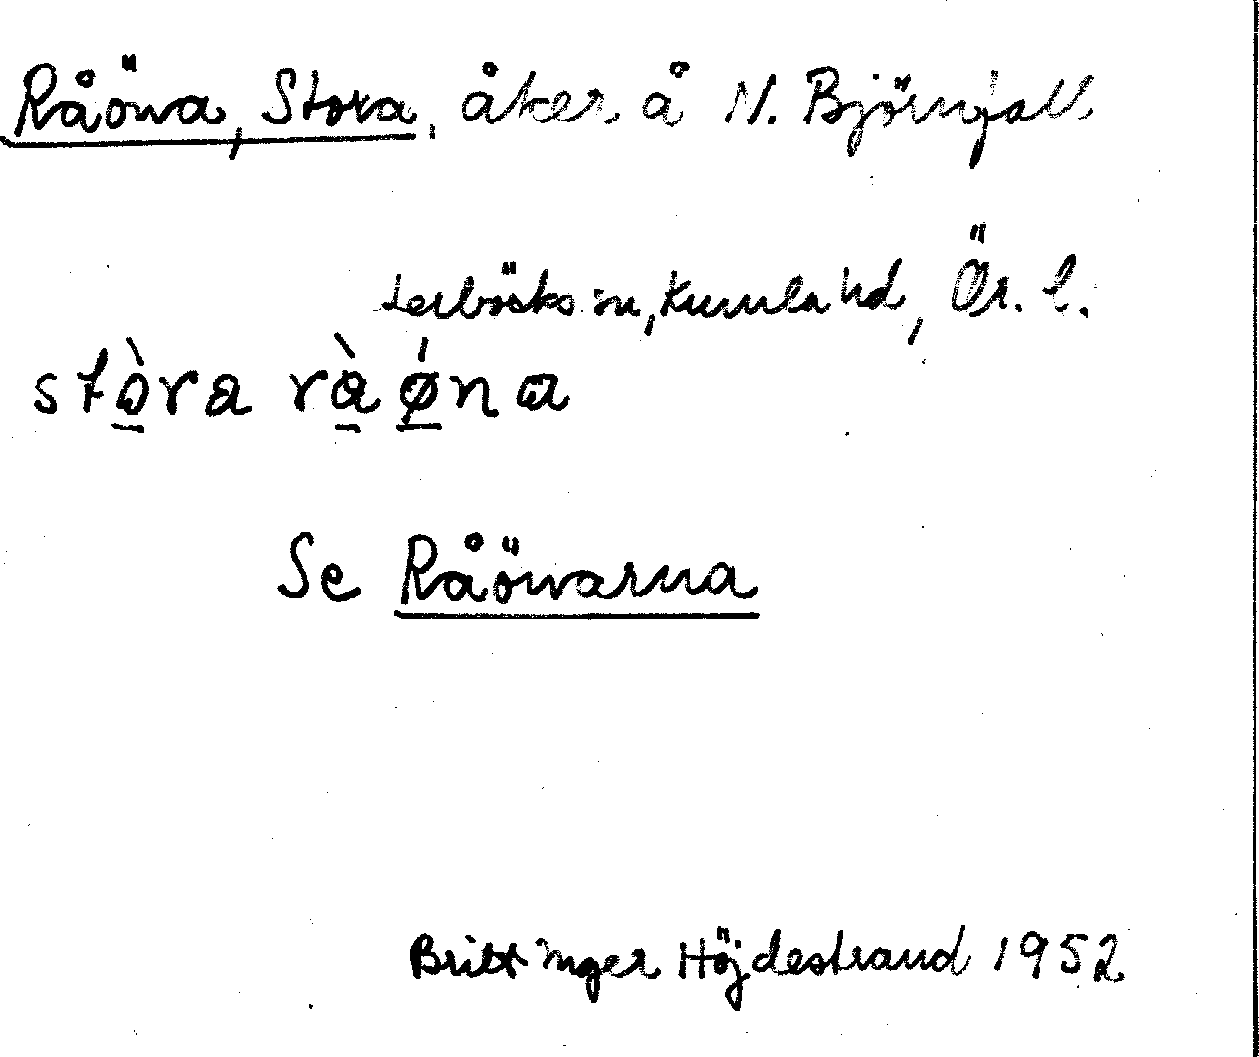 Råöna, Stora, åker å N. Björnfall
Lerbäcks sn, Kumla hd, Ör. l.
stò̱ra rà̱ǿ̱na
Se Råönarna
Britt Inger Höjdestrand 1952